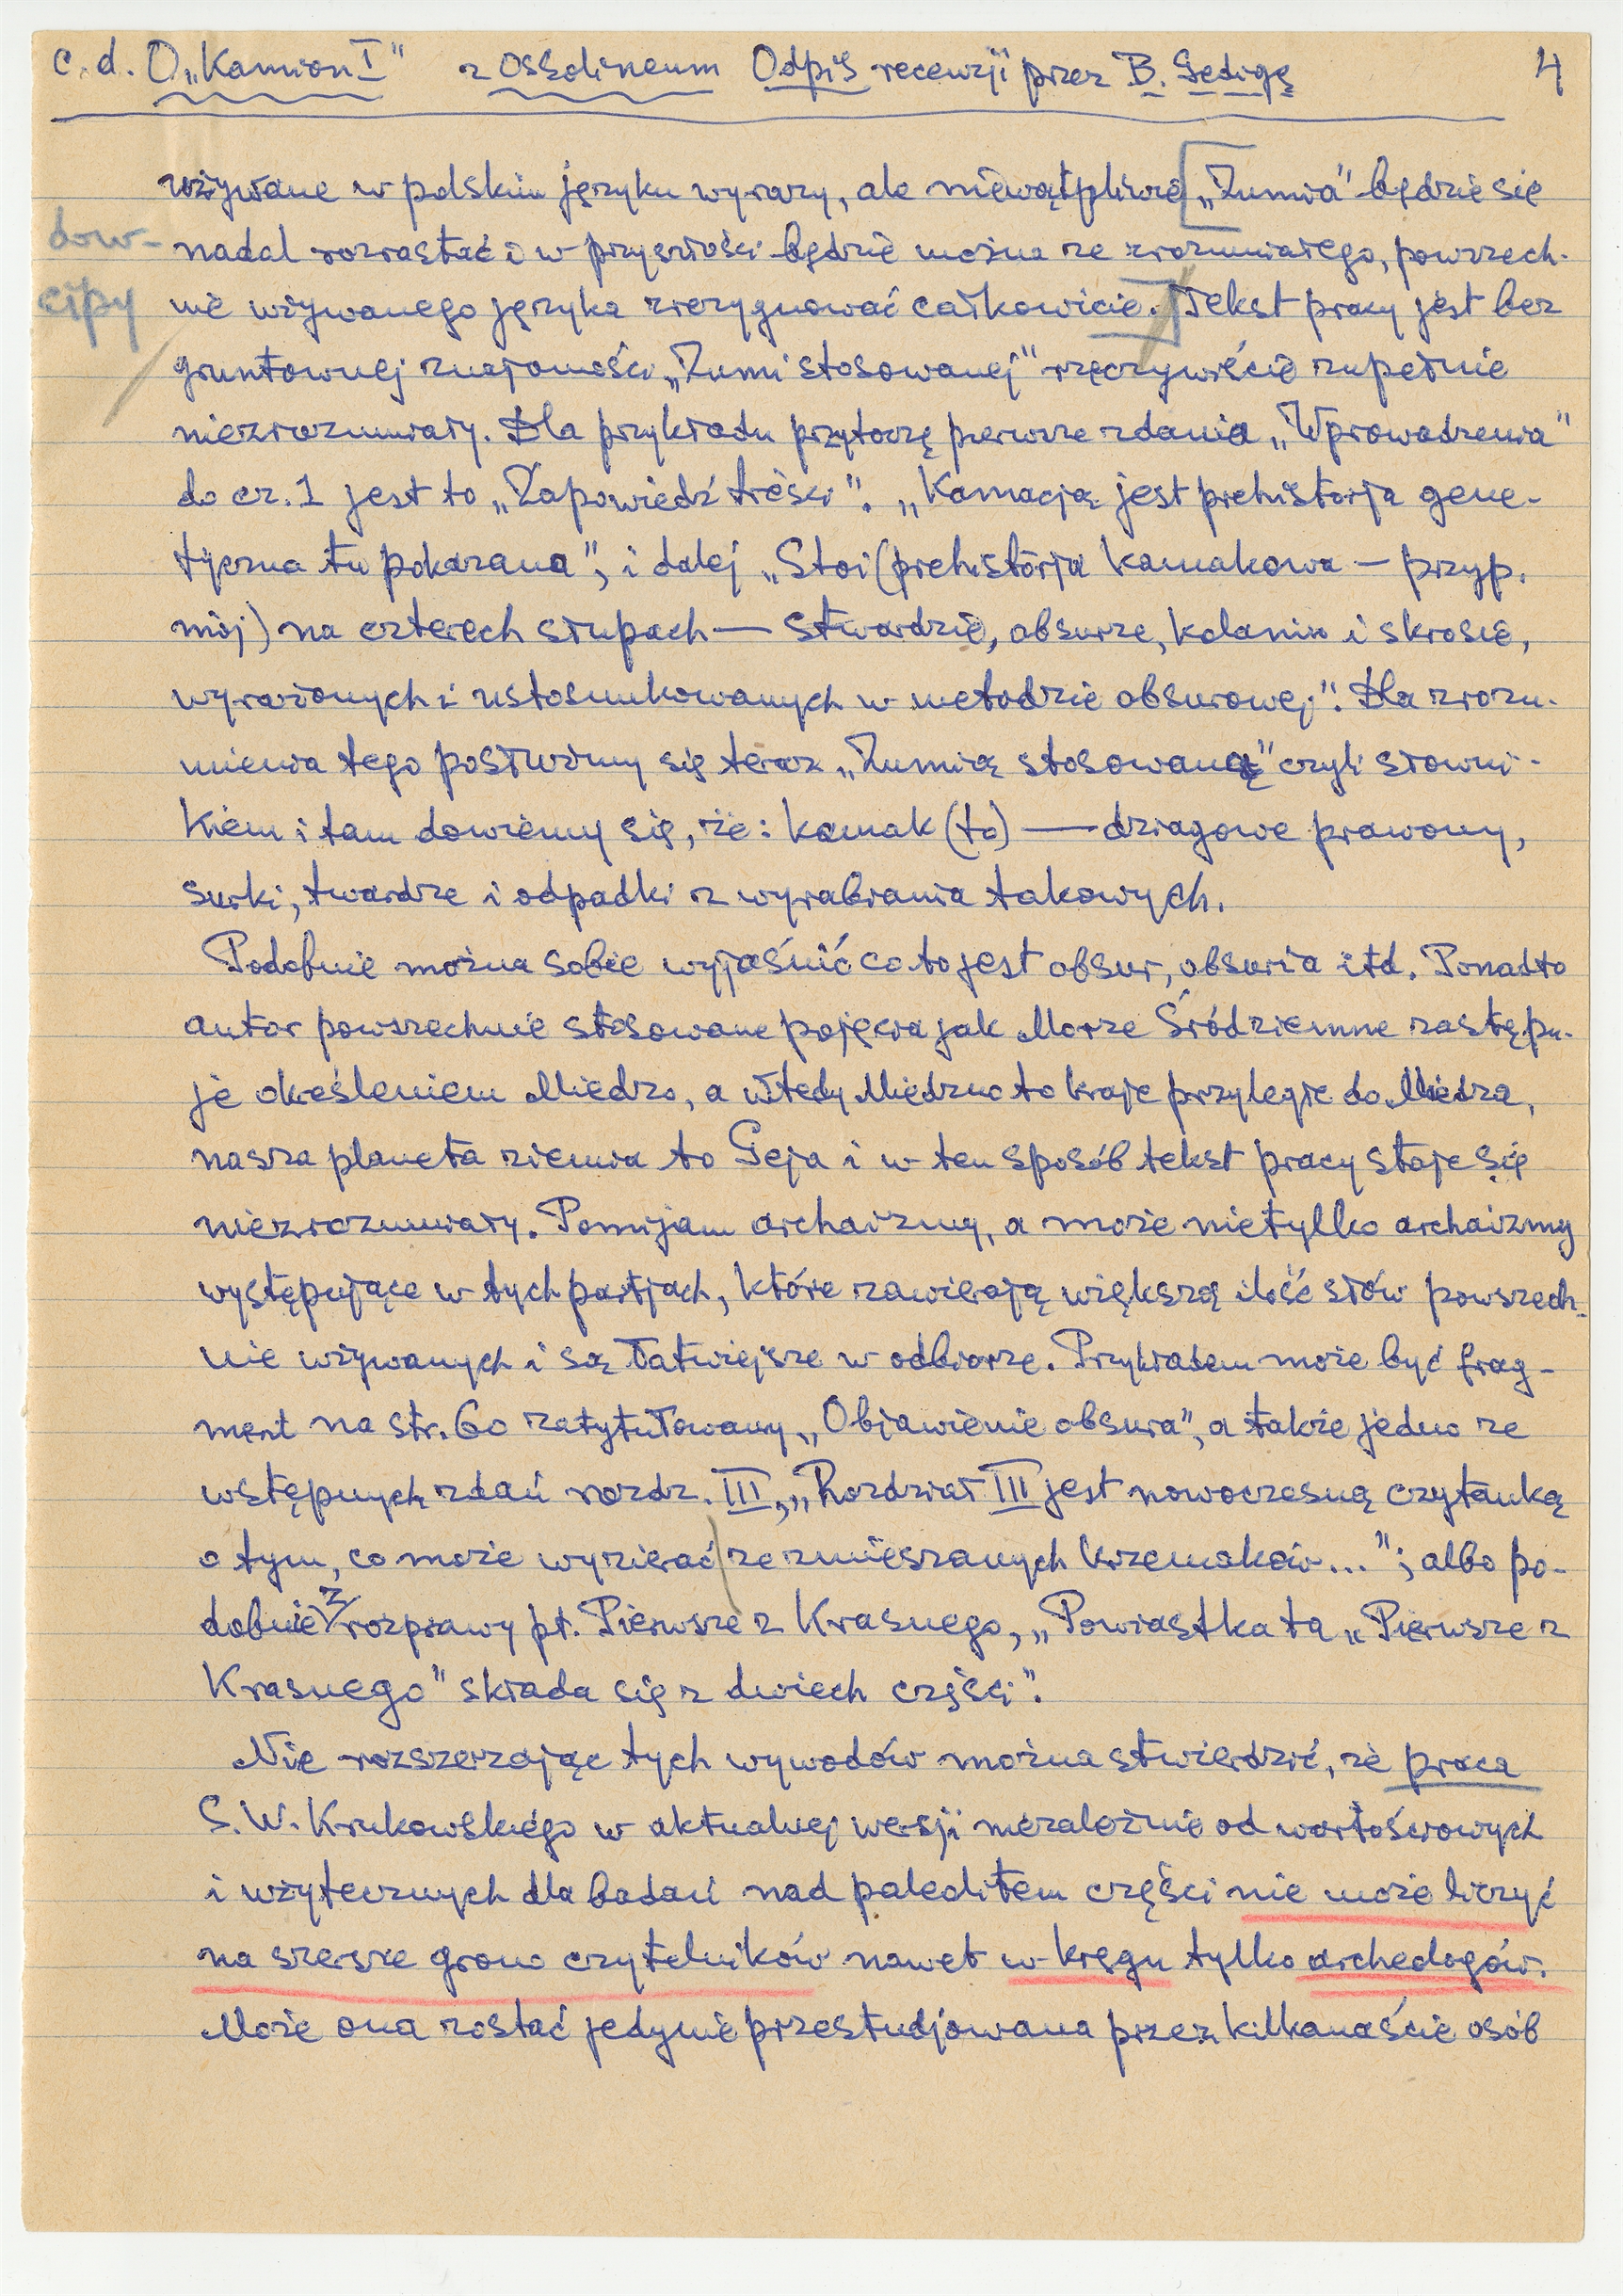 c.d. O „Kamion I" z Ossolineum Odpis recenzji przez B. Gedigę 4
używane w polskim języku wyrazy, ale niewątpliwie „Zumia" będzie się
dow-
nadal rozrastać i w przyszłości będzie można ze zrozumiałego, powszech-
cipy
nie używanego języka zrezygnować całkowicie. Tekst pracy jest bez
gruntownej znajomości „Zumi stosowanej" rzeczywiście zupełnie
niezrozumiały. Dla przykładu przytoczę pierwsze zdania „Wprowadzenia"
do cz. 1 jest to „Zapowiedź treści". „Kamacją jest prehistorja gene-
tyczna tu pokazana"; i dalej „Stoi (prehistorja kamakowa — przyp.
mój) na czterech słupach — stwardzie, obsurze, kolanin i skrosie,
wyrażonych i ustosunkowanych w metodzie obsurowej". Dla zrozu-
mienia tego posłużmy się teraz „Zumią stosowaną" czyli słowni-
kiem i tam dowiemy się, że: kamak (to) — dziagowe prawony,
surki, twardze i odpadki z wyrabiania takowych.
Podobnie można sobie wyjaśnić co to jest obsur, obsuria itd. Ponadto
autor powszechnie stosowane pojęcia jak Morze Śródziemne zastępu-
je określeniem Miedzo, a wtedy Miedzno to kraje przyległe do Miedza,
nasza planeta ziemia to Geja i w ten sposób tekst pracy staje się
niezrozumiały. Pomijam archaizmy, a może nietylko archaizmy
występujące w tych partjach, które zawierają większą ilość słów powszech-
nie używanych i są łatwiejsze w odbiorze. Przykładem może być frag-
ment na str. 60 zatytułowany „Objawienie obsura", a także jedno ze
wstępnych zdań rozdz. III, „Rozdział III jest nowoczesną czytanką
o tym, co może wyzierać ze zmieszanych krzemaków..."; albo po-
dobnie z rozprawy pt. Pierwsze z Krasnego, „Powiastka ta „Pierwsze z
Krasnego" składa się z dwiech części".
Nie rozszerzając tych wywodów można stwierdzić, że praca
S. W. Krukowskiego w aktualnej wersji niezależnie od wartościowych
i użytecznych dla badań nad paleolitem części nie może liczyć
na szersze grono czytelników nawet w kręgu tylko archeologów.
Może ona zostać jedynie przestudjowana przez kilkanaście osób